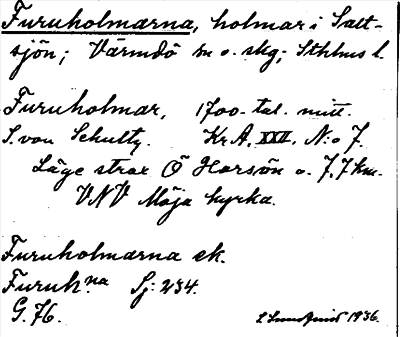 Furuholmarna, holmar i Salt-
sjön; Värmdö sn o. skg; Sthlms l.
Furuholmar, 1700-tal. mitt.
S. von Schultz. Kr.A. XXII. N:o 7.
Läge strax Ö Harsön o. 7,7 km.
VNV Möja kyrka.
Furuholmarna ek.
Furuh.na Sj: 234.
G. 76.
1936.